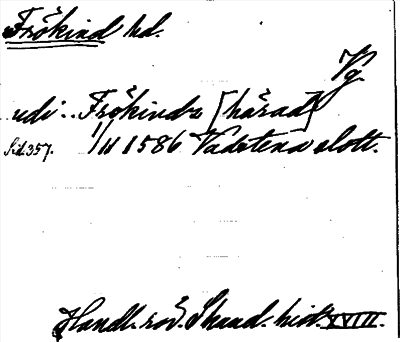 Frökind hd.
Vg.
udi .. Frökinds [härad]
Sid 357. 1/11 1586 Vadstena slott.
Handl. rör. Skand. hist. XVIII.